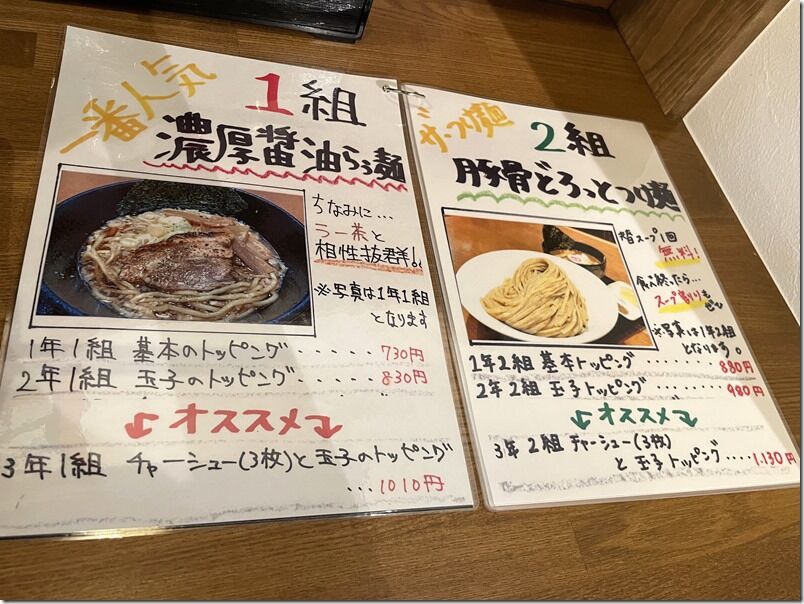 一番人気
1組
濃厚醤油らぅ麺
ちなみに…
ラー茶と
相性抜群!!
※写真は1年1組
となります
1年1組 基本のトッピング・・・・・730円
2年1組 玉子のトッピング・・・・・830円
オススメ
3年1組 チャーシュー(3枚)と玉子のトッピング
…1010円
つけ麺
2組
豚骨どろっとつけ麺
替スープ1回
無料!
食べ終ったら…
スープ割りも
ぜひ
※写真は1年2組
となります。
1年2組 基本トッピング・・・・・880円
2年2組 玉子トッピング・・・・・980円
オススメ
3年2組 チャーシュー(3枚)
と玉子トッピング・・・・1.130円